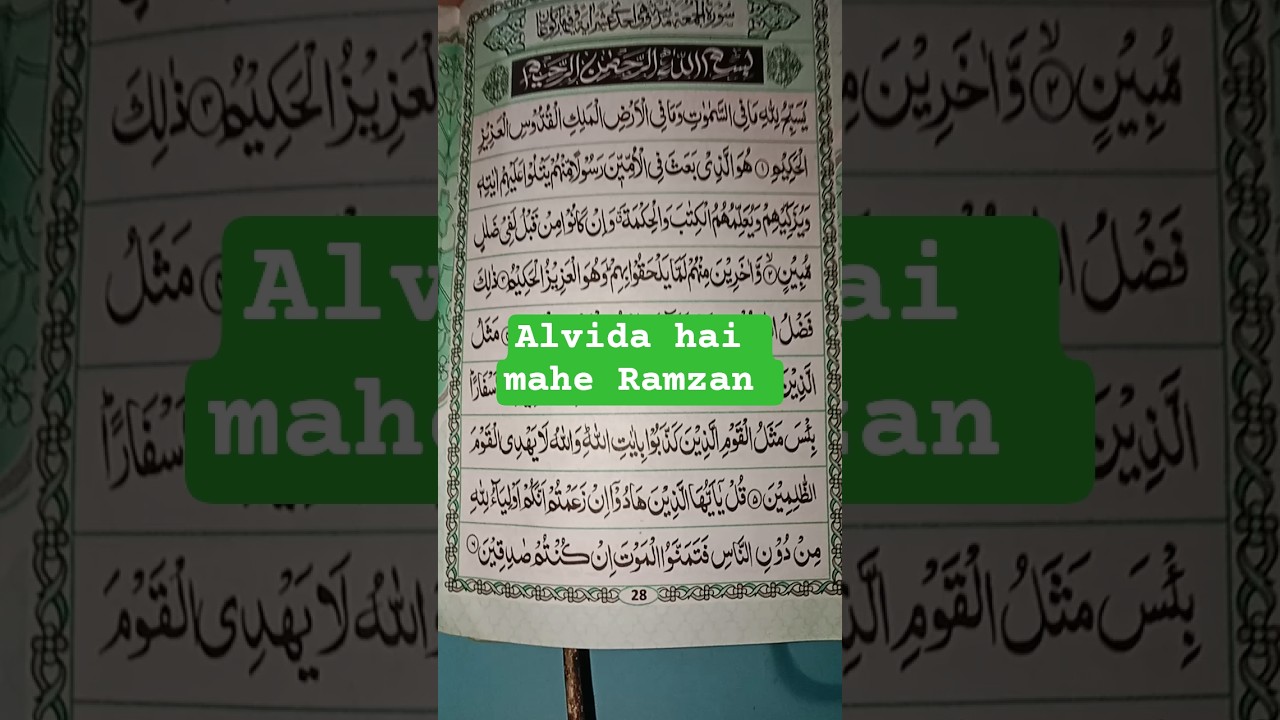 سورة الجمعة
بسم الله الرحمن الرحيم
يُسَبِّحُ لِلّٰهِ مَا فِي السَّمٰوٰتِ وَمَا فِي الْاَرْضِ الْمَلِكِ الْقُدُّوْسِ الْعَزِيْزِ
الْحَكِيْمِ ۝۱ هُوَ الَّذِيْ بَعَثَ فِي الْاُمِّيّٖنَ رَسُوْلًا مِّنْهُمْ يَتْلُوْا عَلَيْهِمْ اٰيٰتِهٖ
وَيُزَكِّيْهِمْ وَيُعَلِّمُهُمُ الْكِتٰبَ وَالْحِكْمَةَ ۗ وَاِنْ كَانُوْا مِنْ قَبْلُ لَفِيْ ضَلٰلٍ
مُّبِيْنٍ ۝۲ۙ وَّاٰخَرِيْنَ مِنْهُمْ لَمَّا يَلْحَقُوْا بِهِمْ ۗ وَهُوَ الْعَزِيْزُ الْحَكِيْمُ ۝۳ ذٰلِكَ
فَضْلُ مَثَلُ
Alvida hai
mahe Ramzan
الَّذِيْنَ اَسْفَارًا
بِئْسَ مَثَلُ الْقَوْمِ الَّذِيْنَ كَذَّبُوْا بِاٰيٰتِ اللّٰهِ ۗ وَاللّٰهُ لَا يَهْدِي الْقَوْمَ
الظّٰلِمِيْنَ ۝۵ قُلْ يٰۤاَيُّهَا الَّذِيْنَ هَادُوْۤا اِنْ زَعَمْتُمْ اَنَّكُمْ اَوْلِيَآءُ لِلّٰهِ
مِنْ دُوْنِ النَّاسِ فَتَمَنَّوُا الْمَوْتَ اِنْ كُنْتُمْ صٰدِقِيْنَ ۝۶
28